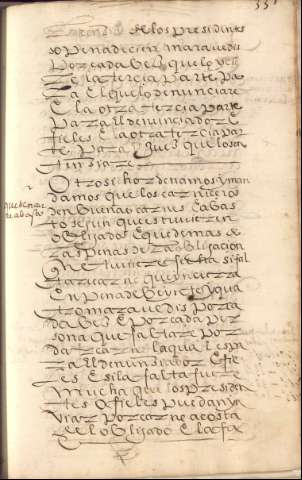 de los presidentes
so pena de cien maravedis
por cada bez que lo
se la terçia parte pa
ra el que lo denunciare
e la otra terçia parte
para el denunciador e
fieles e la otra terçia par
te para el juez que lo sen
tenciare
Otrosi hordenamos y man
damos que los carniçeros
den buenas carnes e abas
to segun que estuvieren
obligados e que demas de
las penas de la obligaçion
que tuvieren fecha si fal
tar carne que
en pena de beinte y qua
tro maravedis por ca
da bez e por cada per
sona que faltare por
dar carne la qual es pa
ra el denunçiador e fie
les e si la falta fuere
mucha que los presiden
tes e fieles puedan ynbi
ar por carne a costa
del obligado e la